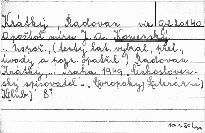 Krátký, Radovan viz G 2 260140
Apoštol míru J. A. Komenský
. Uspoř., (texty lat. vybral, přel.,
úvody a pozn. opatřil) Radovan
Krátký. Praha 1949, Českosloven-
ský spisovatel. Evropský literární
K[lub] 8°